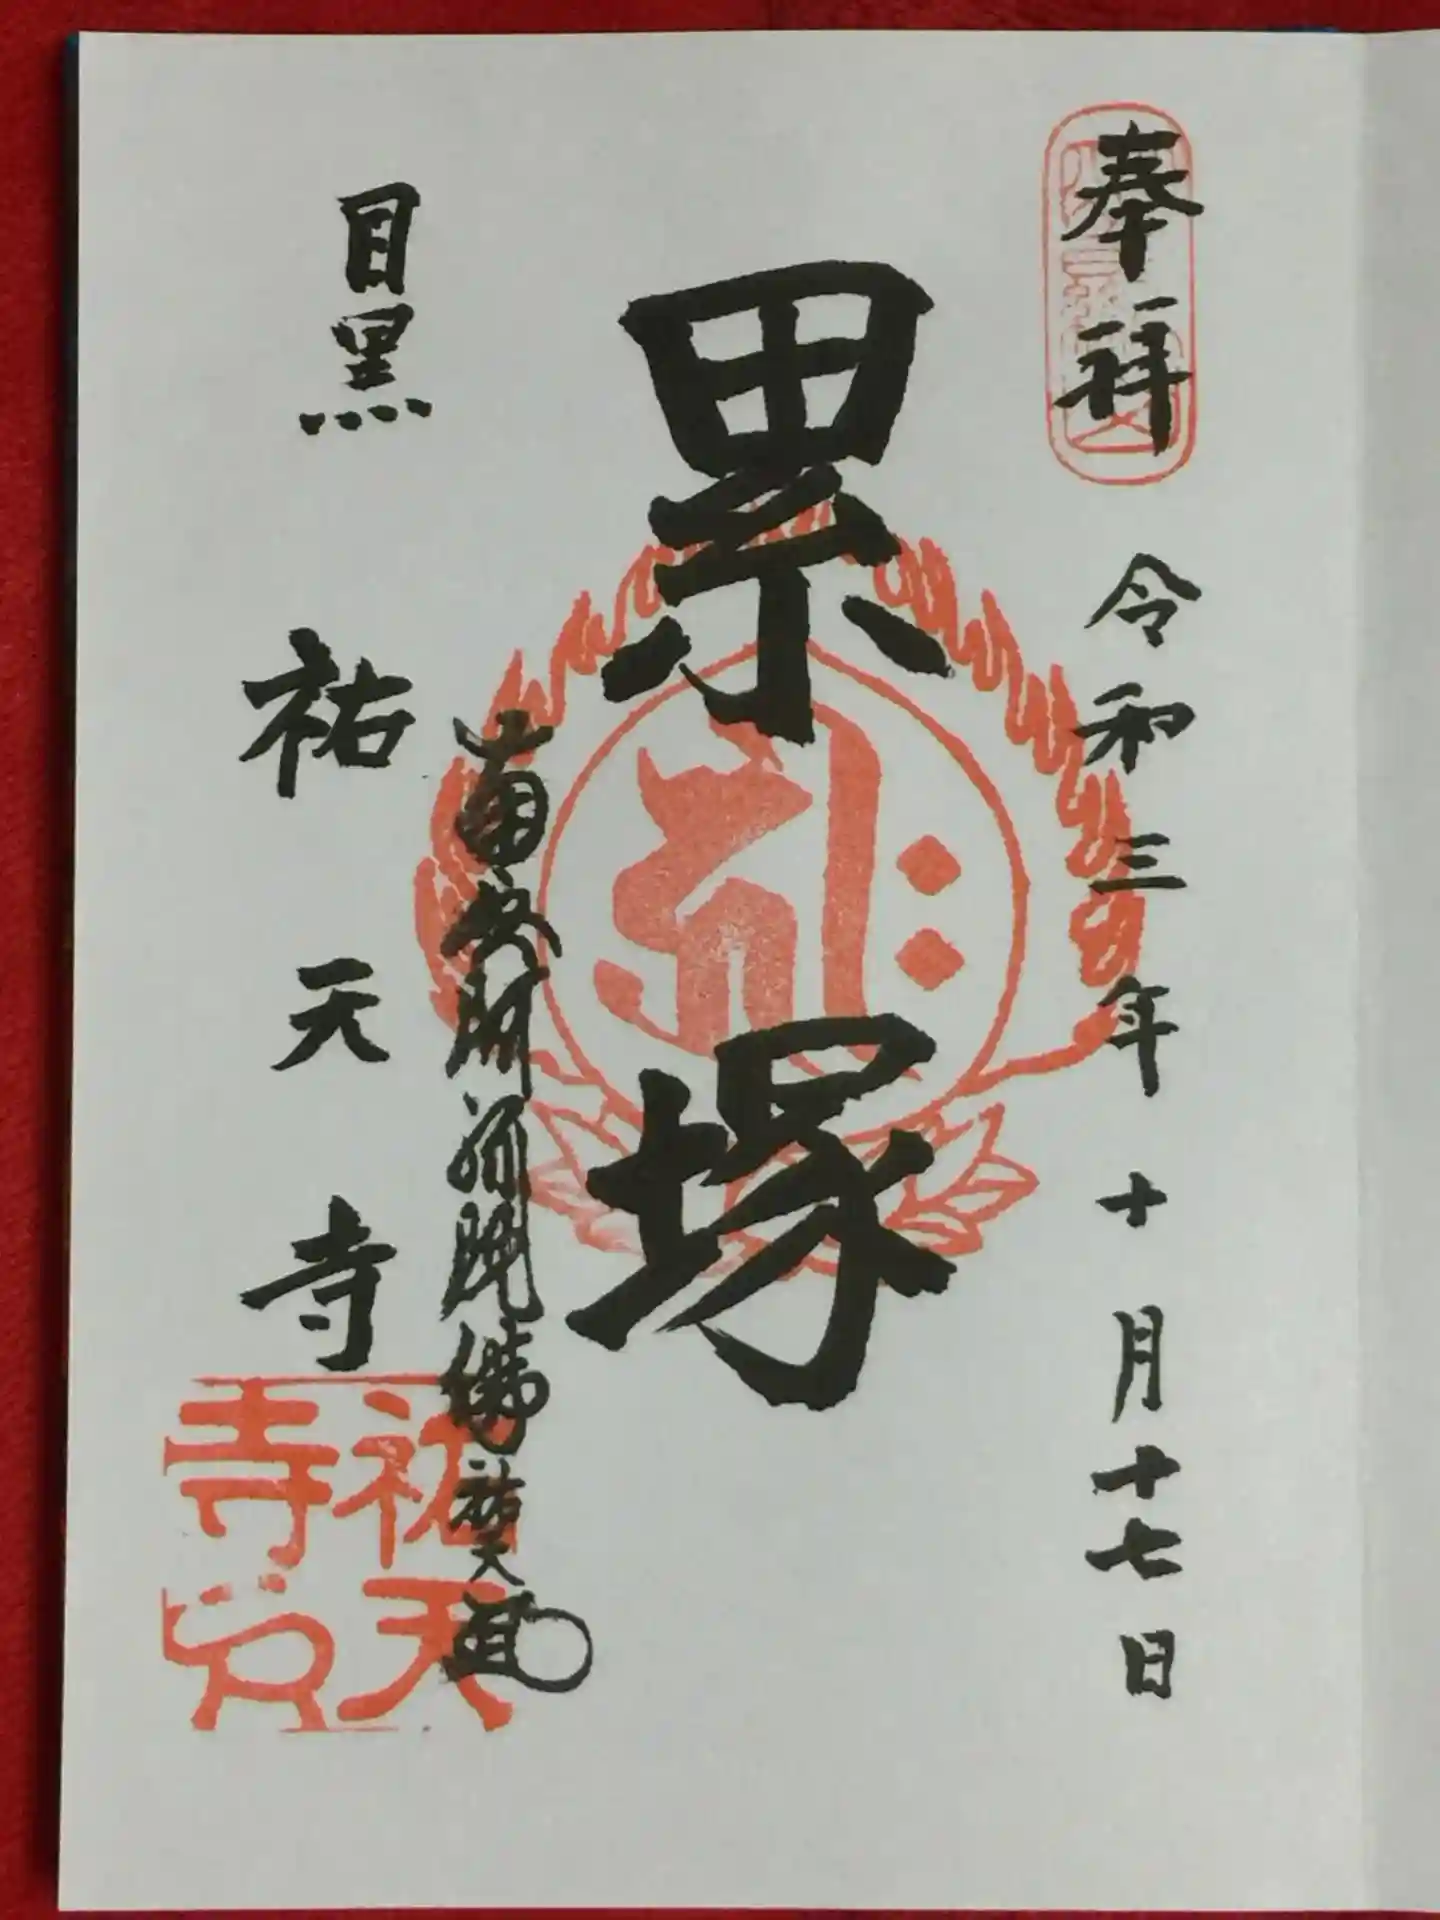 奉拝
令和三年十月十七日
累塚
南無阿弥陀佛 祐天
目黒
祐天寺
祐天
寺